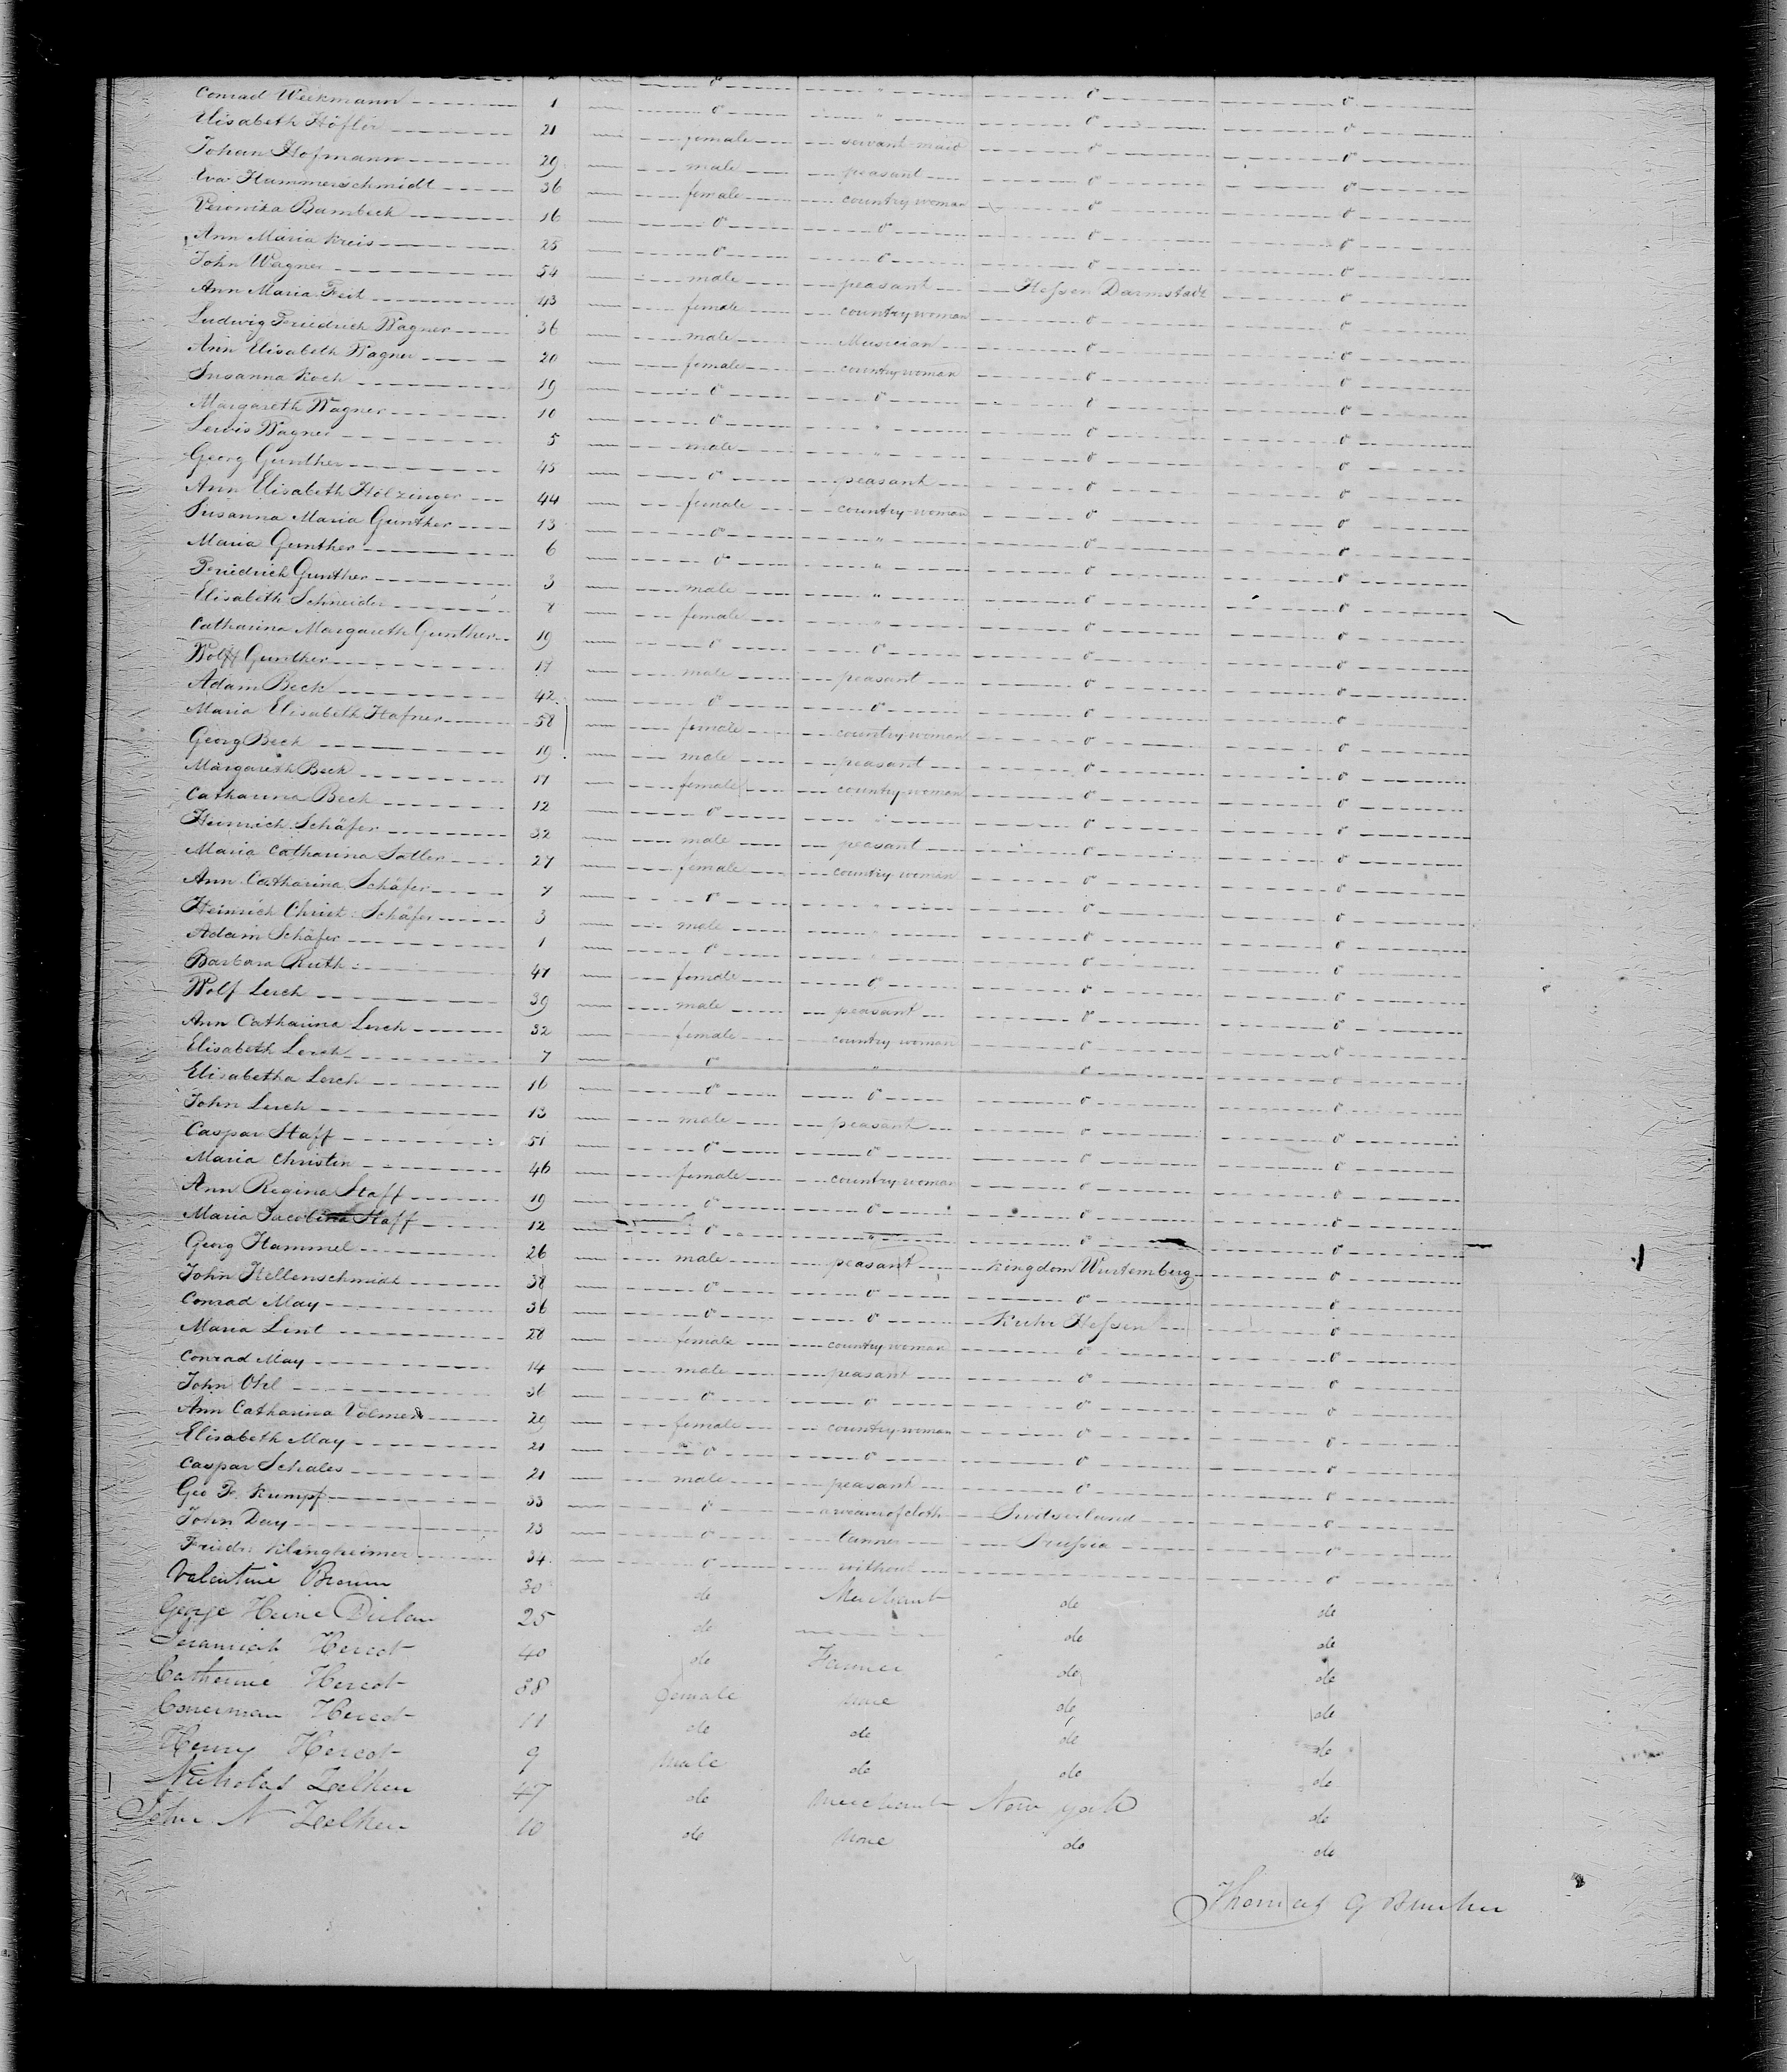 Conrad Weekmann 1 o " o o
Elisabeth Höfler 21 female servant maid o o
Johan Hofmann 29 male peasant o o
Eva Hammerschmidt 36 female country woman o o
Veronika Bambeck 16 o o o o
Ann Maria Kreis 25 o o o o
John Wagner 54 male peasant Hessen Darmstadt o
Ann Maria Feit 43 female country woman o o
Ludwig Friedrich Wagner 36 male Musician o o
Ann Elisabeth Wagner 20 female country woman o o
Susanna Koch 19 o o o o
Margareth Wagner 10 o " o o
Lewis Wagner 5 male " o o
Georg Gunther 45 o peasant o o
Ann Elisabeth Holzinger 44 female country-woman o o
Susanna Maria Gunther 13 o " o o
Maria Gunther 6 o " o o
Friedrich Gunther 3 male " o o
Elisabeth Schneider female " o o
Catharina Margareth Gunther 19 o o o o
Wolff Gunther 17 male peasant o o
Adam Beck 42 o o o o
Maria Elisabeth Hafner 58 female country-woman o o
Georg Beck 19 male peasant o o
Margareth Beck 17 female country-woman o o
Catharina Beck 12 o " o o
Heinrich Schäfer 32 male peasant o o
Maria Catharina Satler 27 female country woman o o
Ann Catharina Schäfer 7 o " o o
Heinrich Christ: Schäfer 3 male " o o
Adam Schäfer 1 o " o o
Barbara Ruth: 47 female o o o
Wolf Lerch 39 male peasant o o
Ann Catharina Lerch 32 female country woman o o
Elisabeth Lerch 7 o " o o
Elisabetha Lerch 16 o o o o
John Lerch 13 male peasant o o
Caspar Staff 51 o o o o
Maria Christen 46 female country-woman o o
Ann Regina Staff 19 o o o o
Maria Jacobina Staff 12 o " o o
Georg Hammel 26 male peasant Kingdom Wurtemberg o
John Kellenschmidt 38 o o o o
Conrad May 36 o o Kuhr Hessen o
Maria Lint 28 female country woman o o
Conrad May 14 male peasant o o
John Ohl 36 o o o o
Ann Catharina Volmer 29 female country-woman o o
Elisabeth May 21 o o o o
Caspar Schales 21 male peasant o o
Geo F. Kumpf 33 o a weaver of cloth Switserland o
John Day 23 o tanner Prussia o
Friedr: Klingheimer 34 o without o
Valentine Braun 30 do Merchant do do
George Heine 25 do do do
Jeramiah Hercot 40 do Farmer do do
Catherine Hercot 38 female None do do
Hercot 11 do do do do
Henry Hercot 9 Male do do do
Nicholas Zelken 47 do Merchant New york do
John N Zelken 10 do None do do
Thomas G Bunker